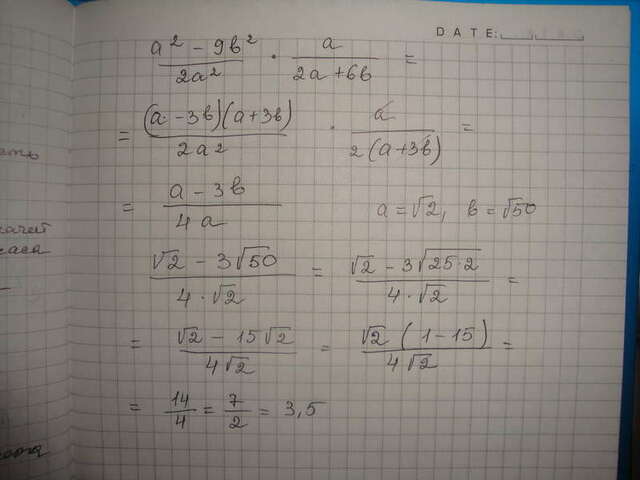 DATE:
a² - 9b² / 2a² · a / 2a + 6b =
= (a - 3b)(a + 3b) / 2a² · a / 2(a + 3b) =
= a - 3b / 4a    a = √2, b = √50
√2 - 3√50 / 4·√2 = √2 - 3√25·2 / 4·√2 =
= √2 - 15√2 / 4√2 = √2 (1 - 15) / 4√2 =
= 14/4 = 7/2 = 3,5